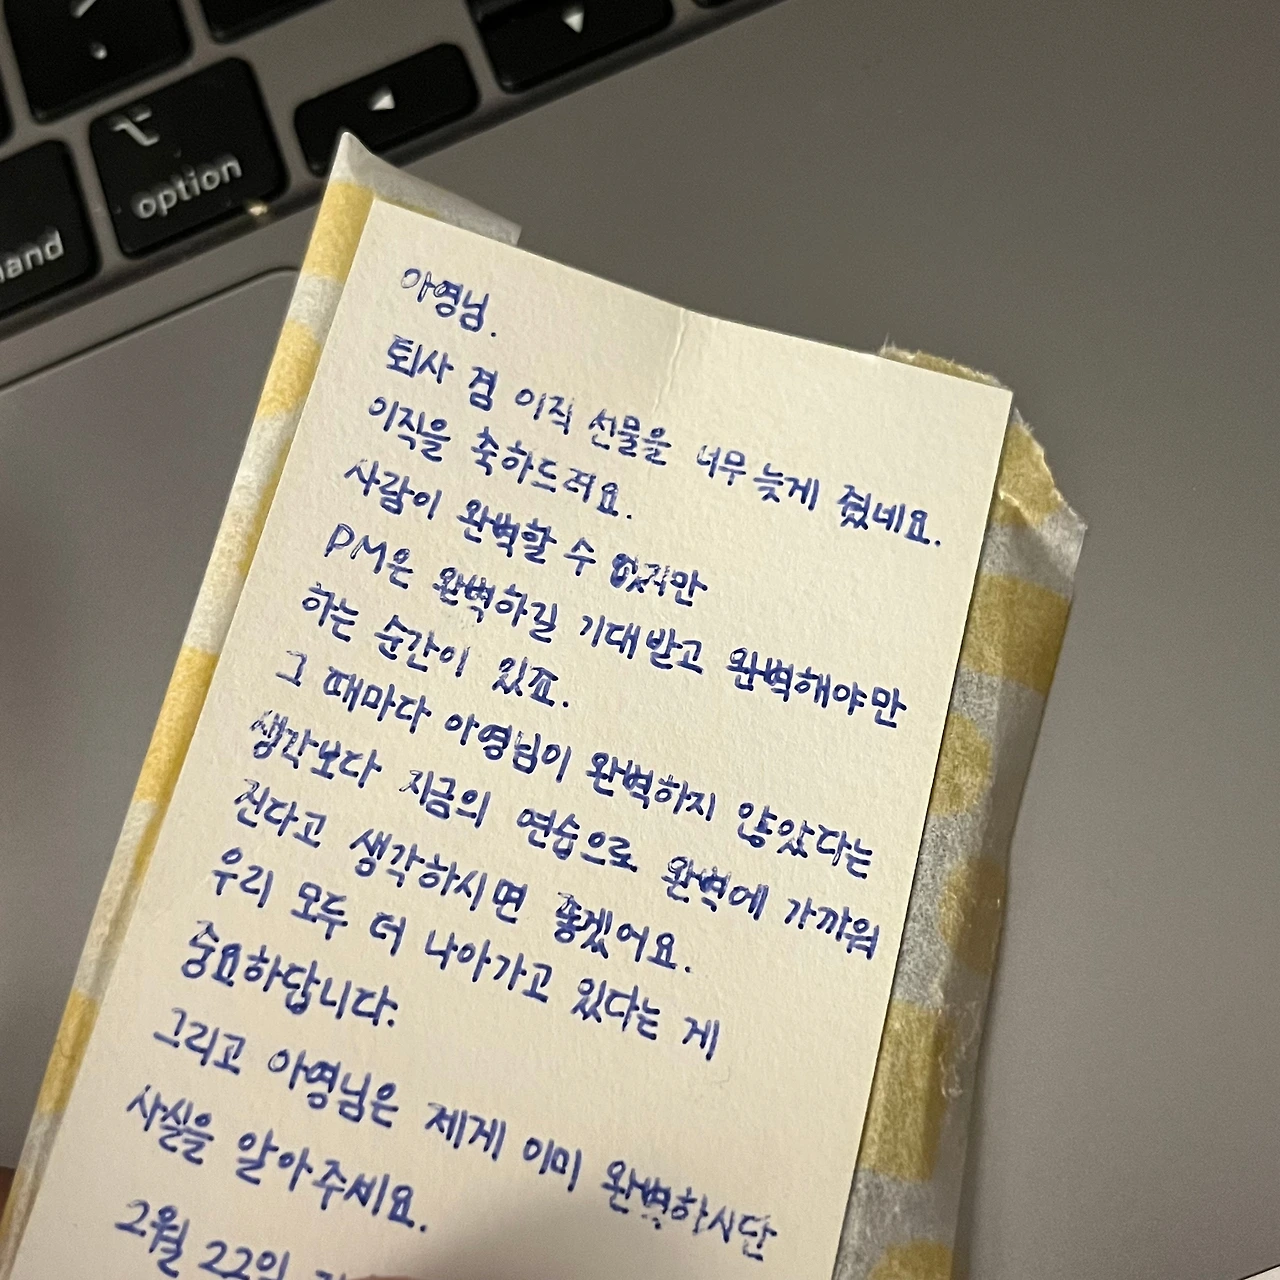 option
아영님.
퇴사 겸 이직 선물을 너무 늦게 줬네요.
이직을 축하드려요.
사람이 완벽할 수 없지만
PM은 완벽하길 기대받고 완벽해야만
하는 순간이 있죠.
그 때마다 아영님이 완벽하지 않았다는
생각보다 지금의 연습으로 완벽에 가까워
진다고 생각하시면 좋겠어요.
우리 모두 더 나아가고 있다는 게
중요하답니다.
그리고 아영님은 제게 이미 완벽하시단
사실을 알아주세요.
2월 22일